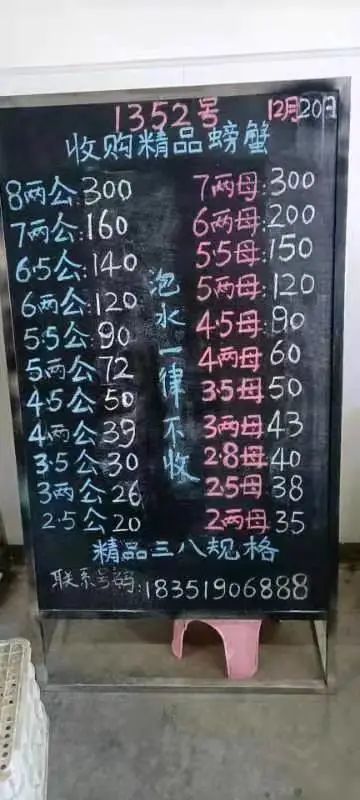 1352号 12月20日
收购精品螃蟹
8两公:300 7两母:300
7两公:160 6两母:200
6.5公:140 5.5母:150
6两公:120 5两母:120
5.5公:90 4.5母:90
5两公:72 4两母:60
4.5公:50 3.5母:50
4两公:39 3两母:43
3.5公:30 2.8母:40
3两公:26 2.5母:38
2.5公:20 2两母:35
泡水一律不收
精品三八规格
联系号码:18351906888